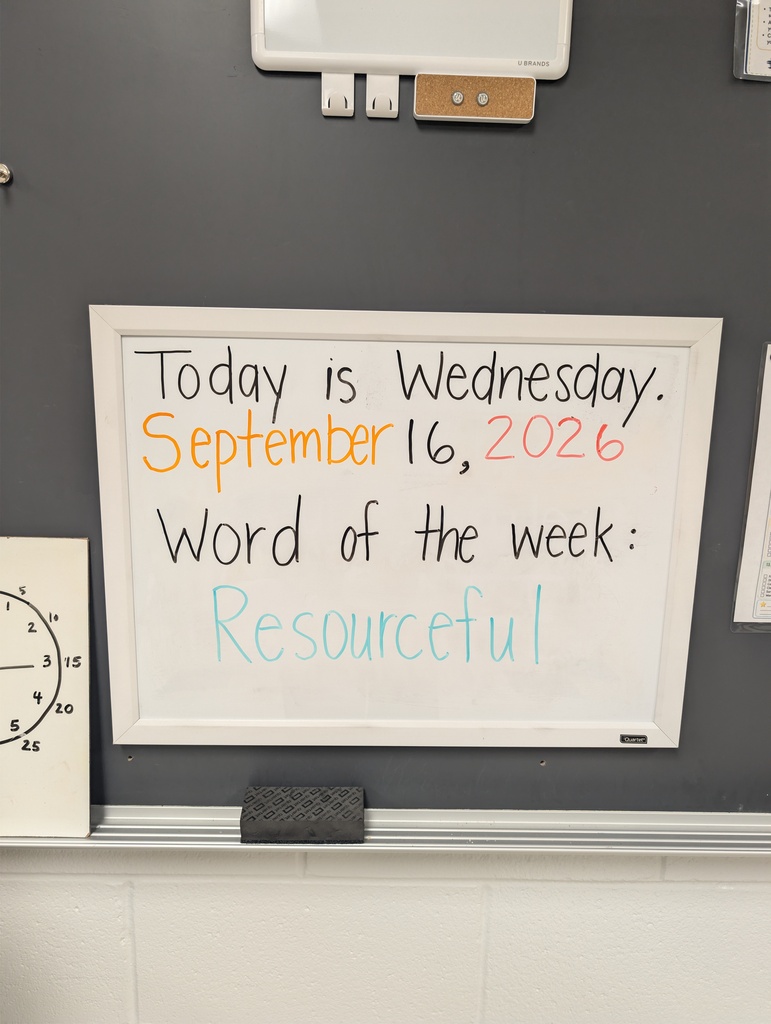 U BRANDS
Today is Wednesday.
September 16, 2026
Word of the week:
Resourceful
Quartet
5
1
10
2
3 15
4
20
5
25